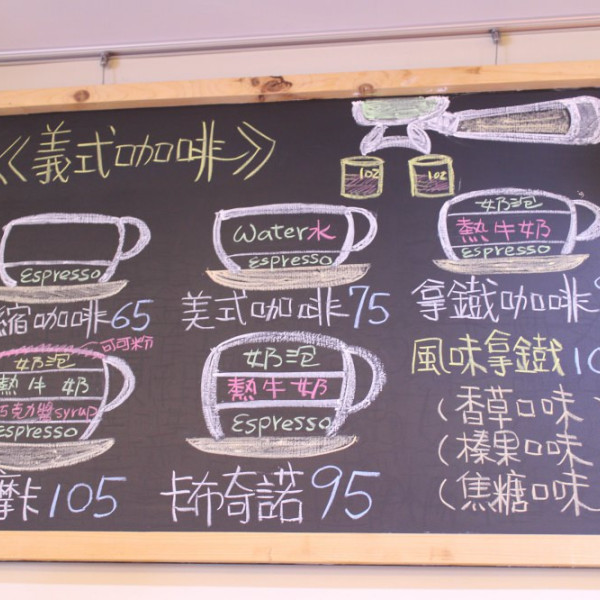 《義式咖啡》
1oz 1oz
Espresso
縮咖啡65
water水
Espresso
美式咖啡75
奶泡
熱牛奶
Espresso
拿鐵咖啡
可可粉
奶泡
熱牛奶
巧克力醬syrup
Espresso
摩卡105
奶泡
熱牛奶
Espresso
卡布奇諾95
風味拿鐵
(香草口味)
(榛果口味
(焦糖口味